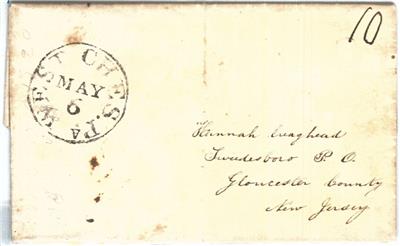 10
WEST CHES. PA
MAY
6
Hannah
Swedesboro P. O.
Gloucester County
New Jersey